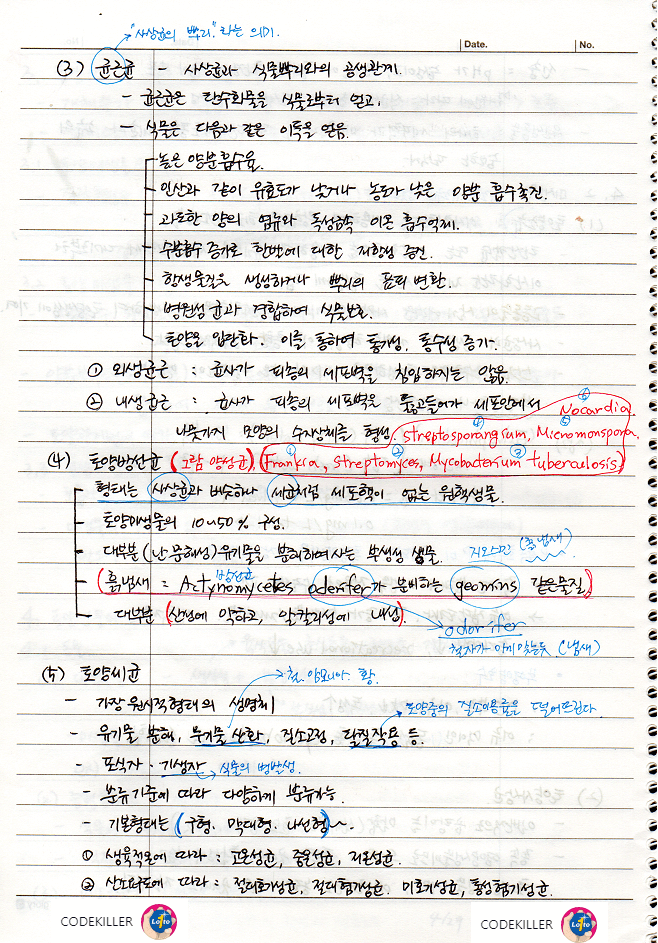 "사상균의 뿌리"라는 의미.
Date. No.
(3) 균근균 - 사상균과 식물뿌리와의 공생관계.
- 균근균은 탄수화물을 식물로부터 얻고,
- 식물은 다음과 같은 이득을 얻음.
높은 양분흡수율.
인산과 같이 유효도가 낮거나 농도가 낮은 양분 흡수촉진.
과도한 양의 염류와 독성금속 이온 흡수억제.
수분흡수 증가로 한발에 대한 저항성 증진.
항생물질을 생성하거나 뿌리의 표피 변환.
병원성 균과 경합하여 식물보호.
토양을 입단화. 이를 통하여 통기성. 투수성 증가.
① 외생균근 : 균사가 피층의 세포벽을 침입하지는 않음.
② 내생균근 : 균사가 피층의 세포벽을 뚫고들어가 세포안에서 ⑤ Nocardia,
나뭇가지 모양의 수지상체를 형성. ④ streptosporangium, Micromonspora.
(4) 토양방선균 (그람 양성균) (① Frankia, streptomyces, Mycobacterium ② tuberculosis)
형태는 사상균과 비슷하나 세균처럼 세포핵이 없는 원핵생물.
토양미생물의 10~50 % 구성.
대부분 (난분해성) 유기물을 분해하여 사는 부생성 생물. 지오스민 (흙냄새)
방선균
(흙냄새 = Actynomycetes oderifer가 분비하는 geomins 같은물질)
대부분 (산성에 약하고, 알칼리성에 내성)
odorifer
철자가 이게 맞는듯 (냄새)
(5) 토양세균 철. 암모니아. 황.
- 가장 원시적형태의 생명체
토양중의 질소이용률을 떨어뜨린다.
- 유기물 분해, 무기물 산화, 질소고정, 탈질작용 등.
- 포식자 · 기생자 식물의 병발생.
- 분류기준에 따라 다양하게 분류가능.
- 기본형태는 (구형. 막대형. 나선형)~.
① 생육적온에 따라 : 고온성균, 중온성균, 저온성균.
② 산소요구도에 따라 : 절대호기성균, 절대혐기성균. 미호기성균, 통성혐기성균.
CODEKILLER Lotto CODEKILLER Lotto